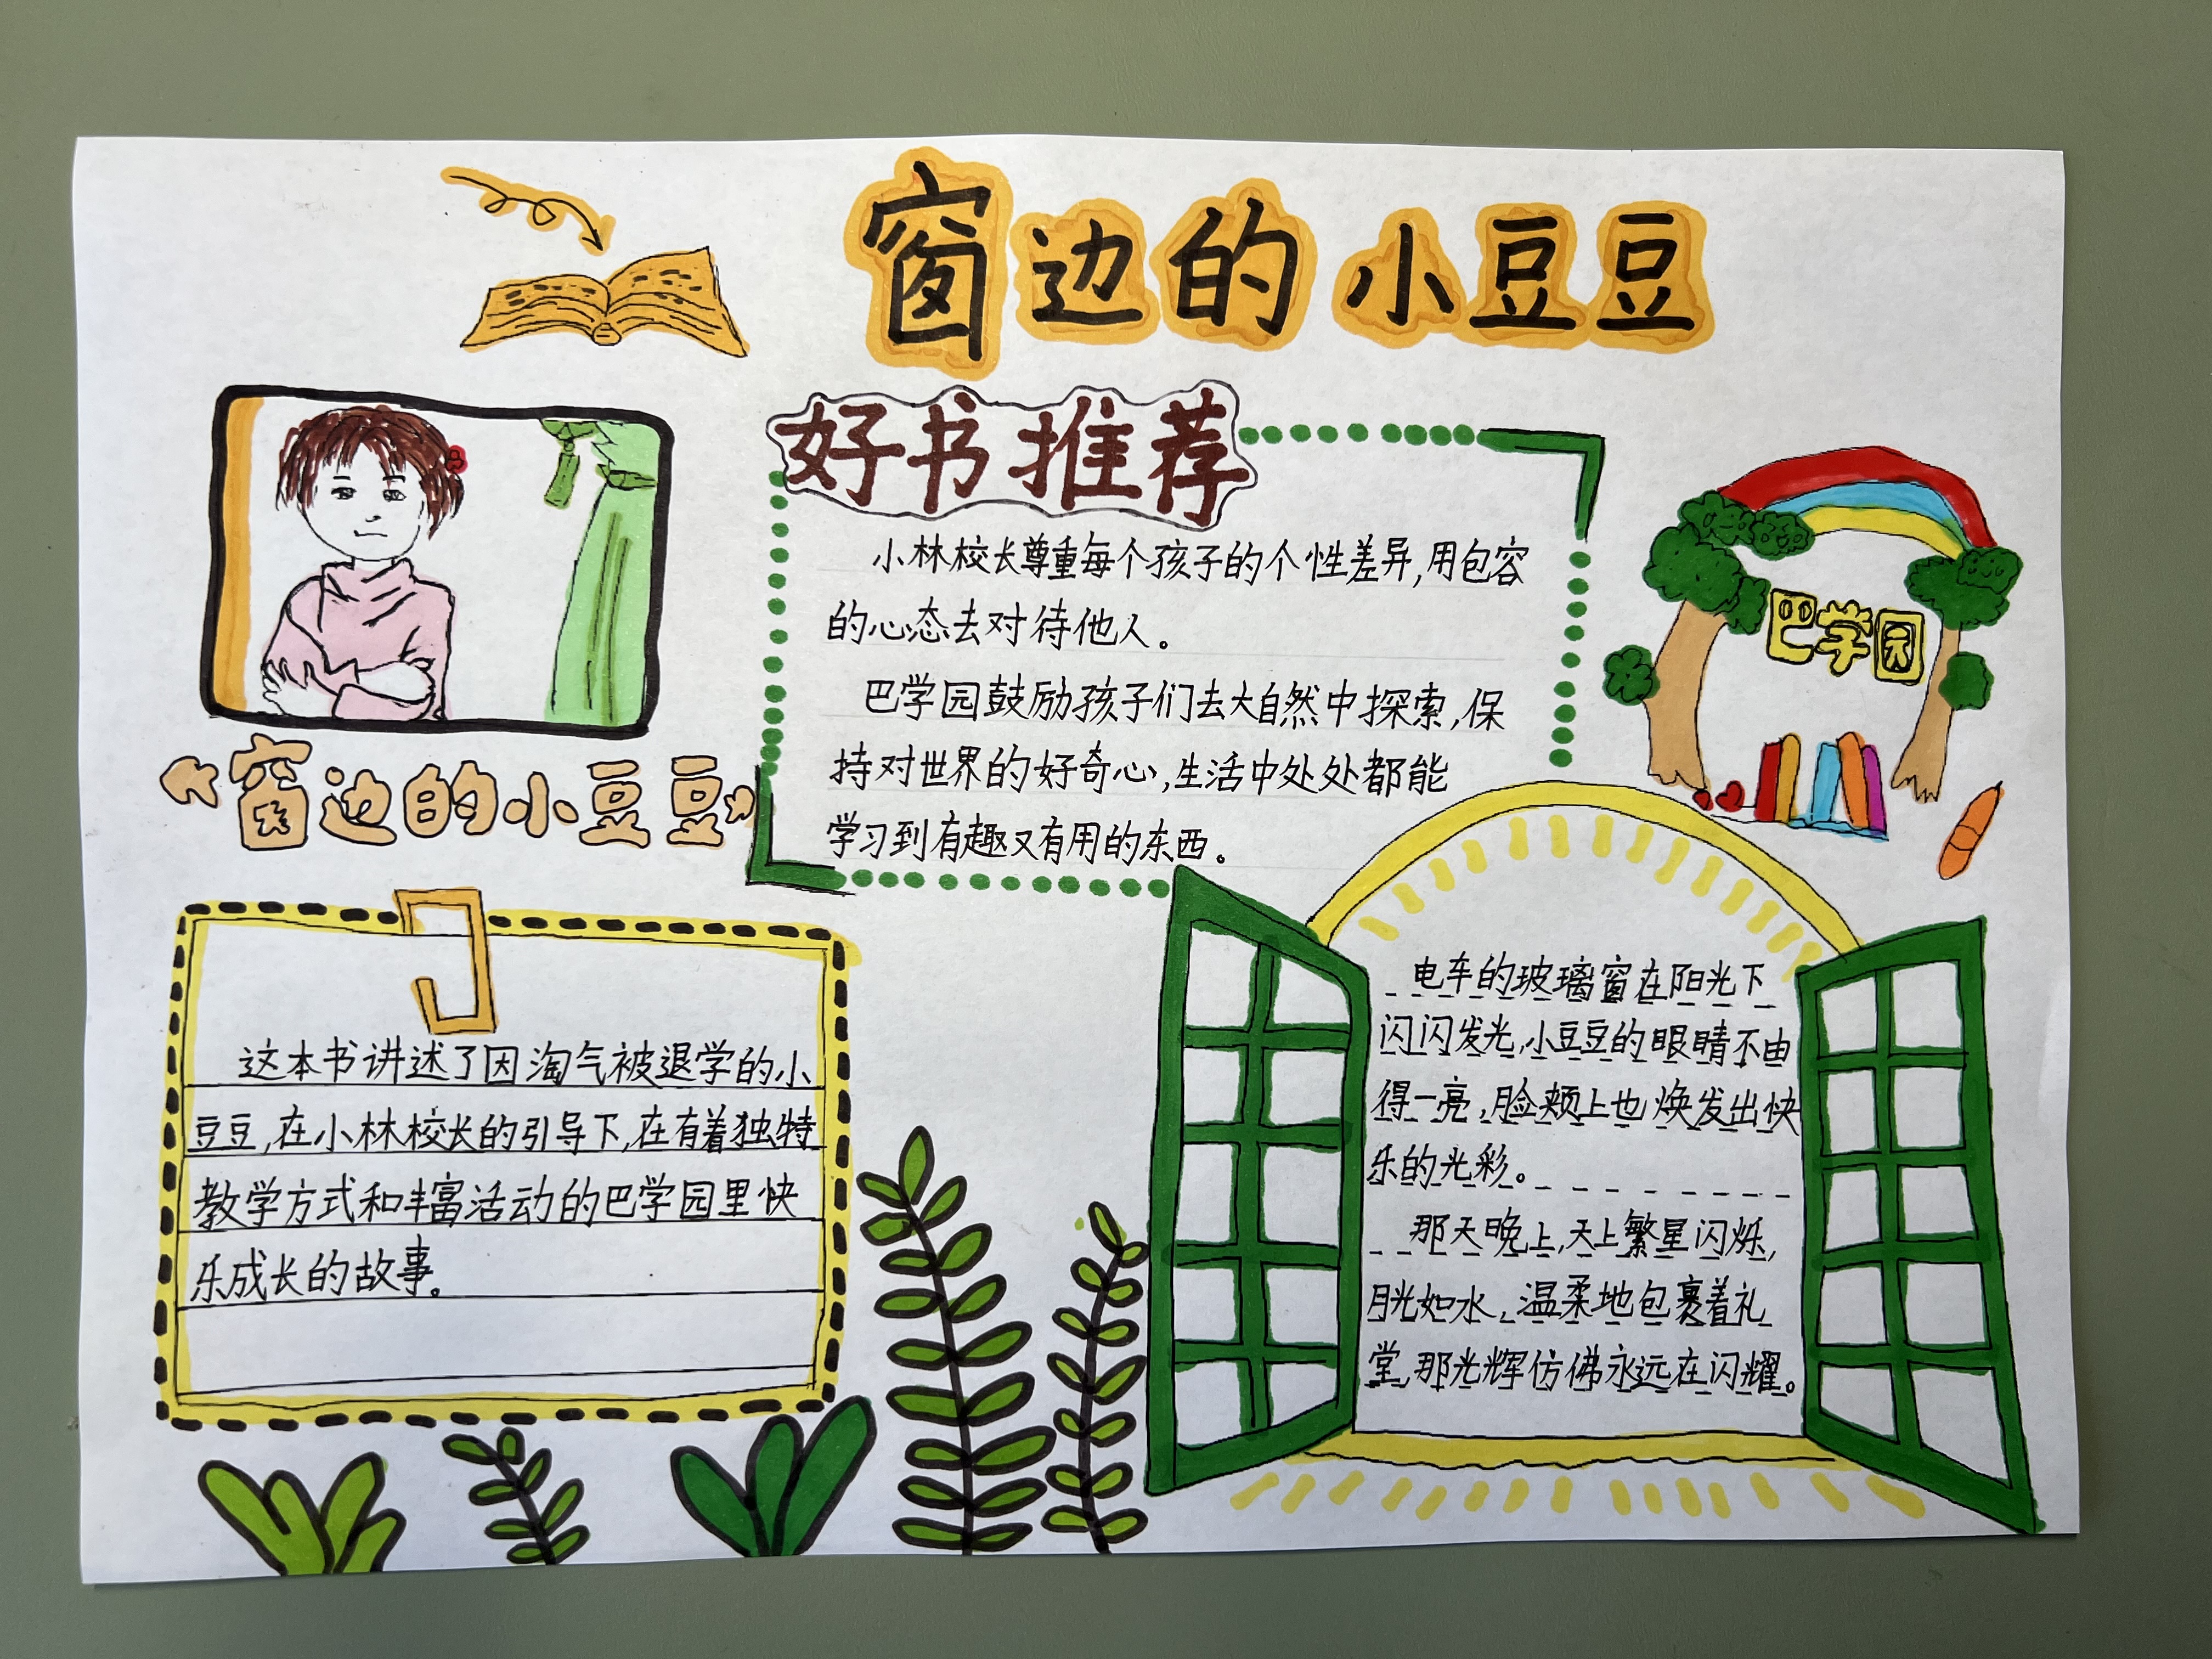 窗边的小豆豆
好书推荐
小林校长尊重每个孩子的个性差异,用包容
的心态去对待他人。
巴学园鼓励孩子们去大自然中探索,保
持对世界的好奇心,生活中处处都能
学习到有趣又有用的东西。
巴学园
《窗边的小豆豆》
这本书讲述了因淘气被退学的小
豆豆,在小林校长的引导下,在有着独特
教学方式和丰富活动的巴学园里快
乐成长的故事。
电车的玻璃窗在阳光下
闪闪发光,小豆豆的眼睛不由
得一亮,脸颊上也焕发出快
乐的光彩。
那天晚上,天上繁星闪烁,
月光如水,温柔地包裹着礼
堂,那光辉仿佛永远在闪耀。